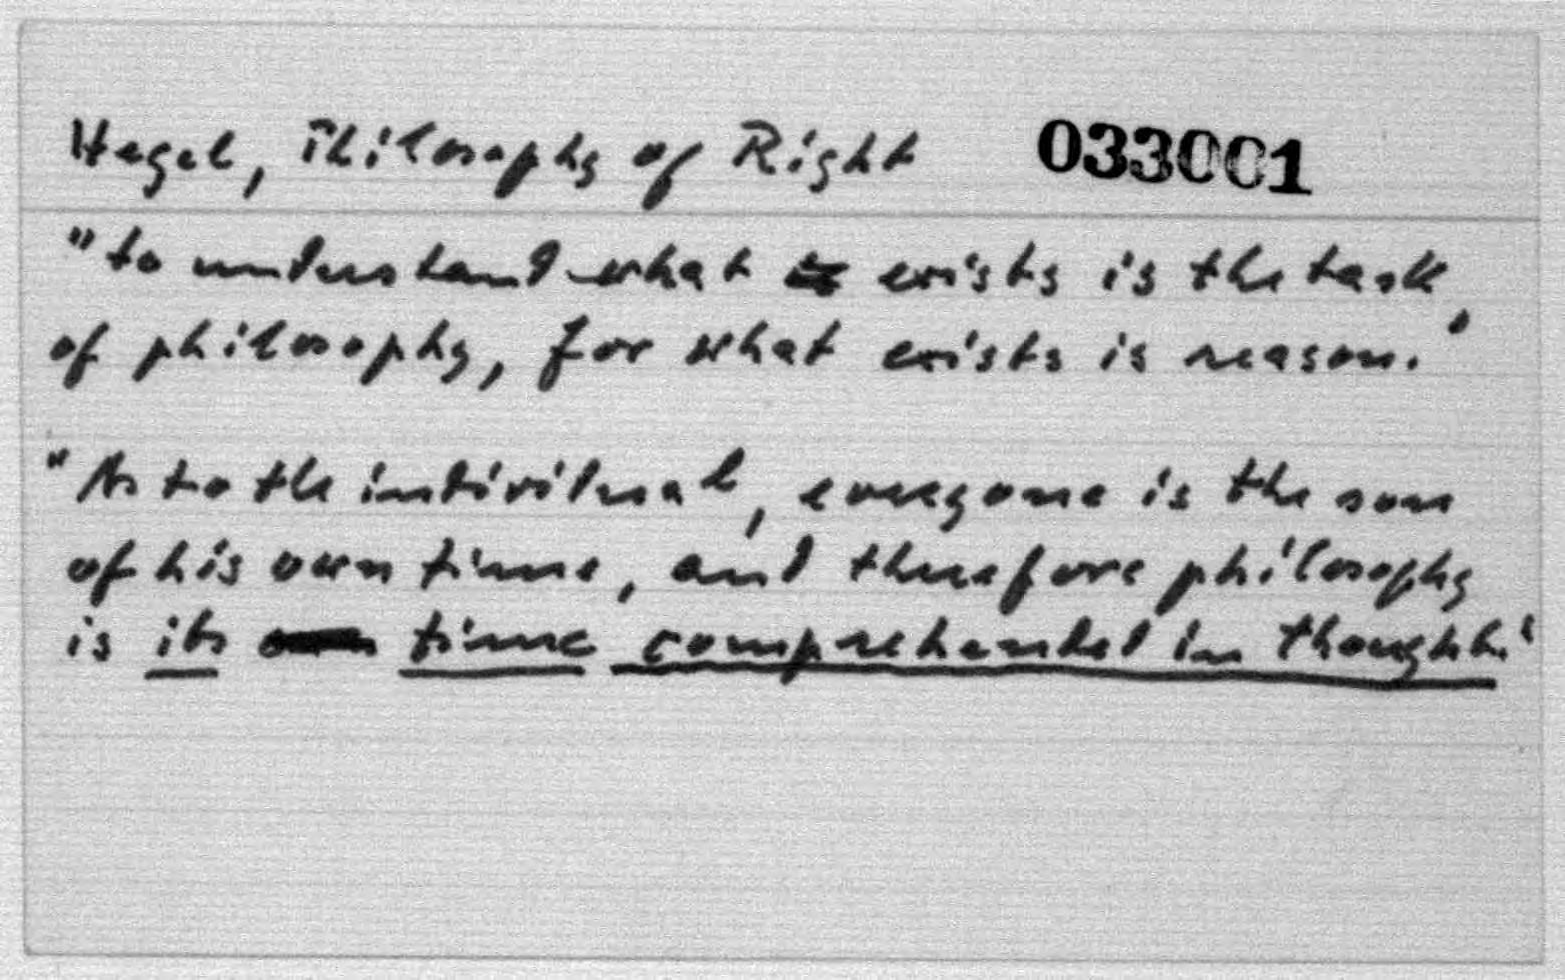 Hegel, Philosophy of Right 033001
"to understand what exists is the task
of philosophy, for what exists is reason."
"As to the individual, everyone is the son
of his own time, and therefore philosophy
is its time comprehended in thought."